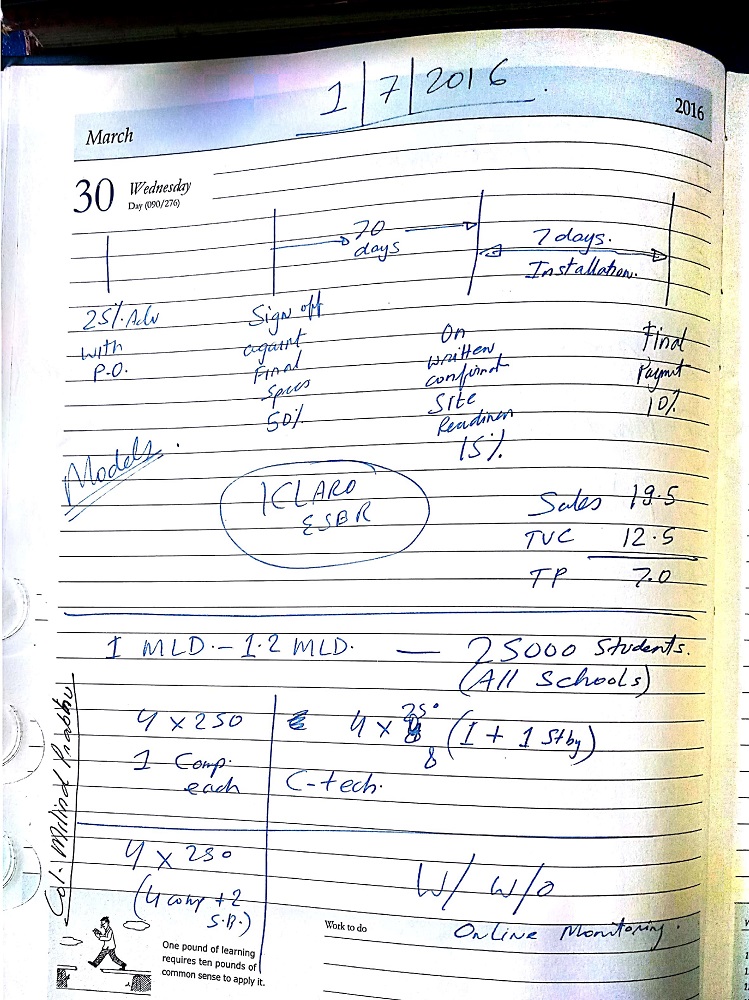 1/7/2016
March
2016
30 Wednesday
Day (090/276)
70 days
7 days.
Installation.
25% Adv
with
P.O.
Sign off
against
Final
Specs
50%
On
written
confirmat
Site
Readiness
15%
Final
Paymt
10%
Models.
ICLARO
ESBR
Sales 19.5
TVC 12.5
TP 7.0
1 MLD. - 1.2 MLD. — 25000 Students.
(All Schools)
4 x 250
1 Comp.
each
4 x 250 (1 + 1 Stby)
8
C-tech.
4 x 250
(4 comp + 2
S.B.)
W/ W/O
Online Monitoring.
Col. Milind Prabhu
Work to do
One pound of learning
requires ten pounds of
common sense to apply it.